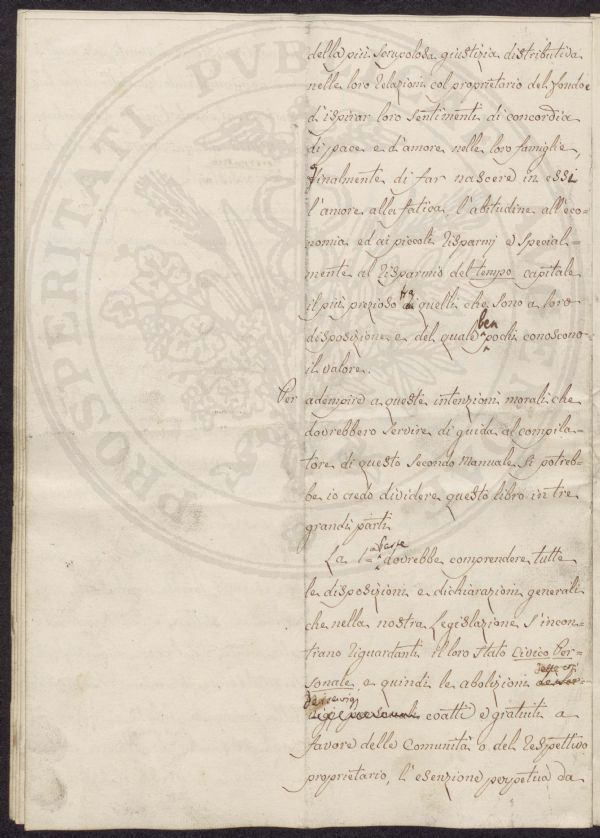 della più scrupolosa giustizia distributiva
nelle loro relazioni col proprietario del fondo e
d'ispirar loro sentimenti di concordia
di pace e d'amore nelle loro famiglie,
Finalmente di far nascere in essi
l'amore alla fatica l'abitudine all'eco=
nomia ed ai piccoli risparmj e special=
mente al risparmio del tempo capitale
il più prezioso tra quelli che sono a loro
disposizione e del quale ben pochi conoscono
il valore.
Per adempire a queste intenzioni morali che
dovrebbero servire di guida al compila=
tore di questo secondo Manuale si potreb=
be io credo dividere questo libro in tre
grandi parti
La 1ª parte dovrebbe comprendere tutte
le disposizioni e dichiarazioni generali
che nella nostra Legislazione s'incon=
trano riguardanti il loro stato Civico Per=
sonale e quindi le abolizioni
dei servigj coatti e gratuiti a
favore delle Comunità o del respettivo
proprietario, l'esenzione perpetua da
PROSPERITATI PVBLICAE